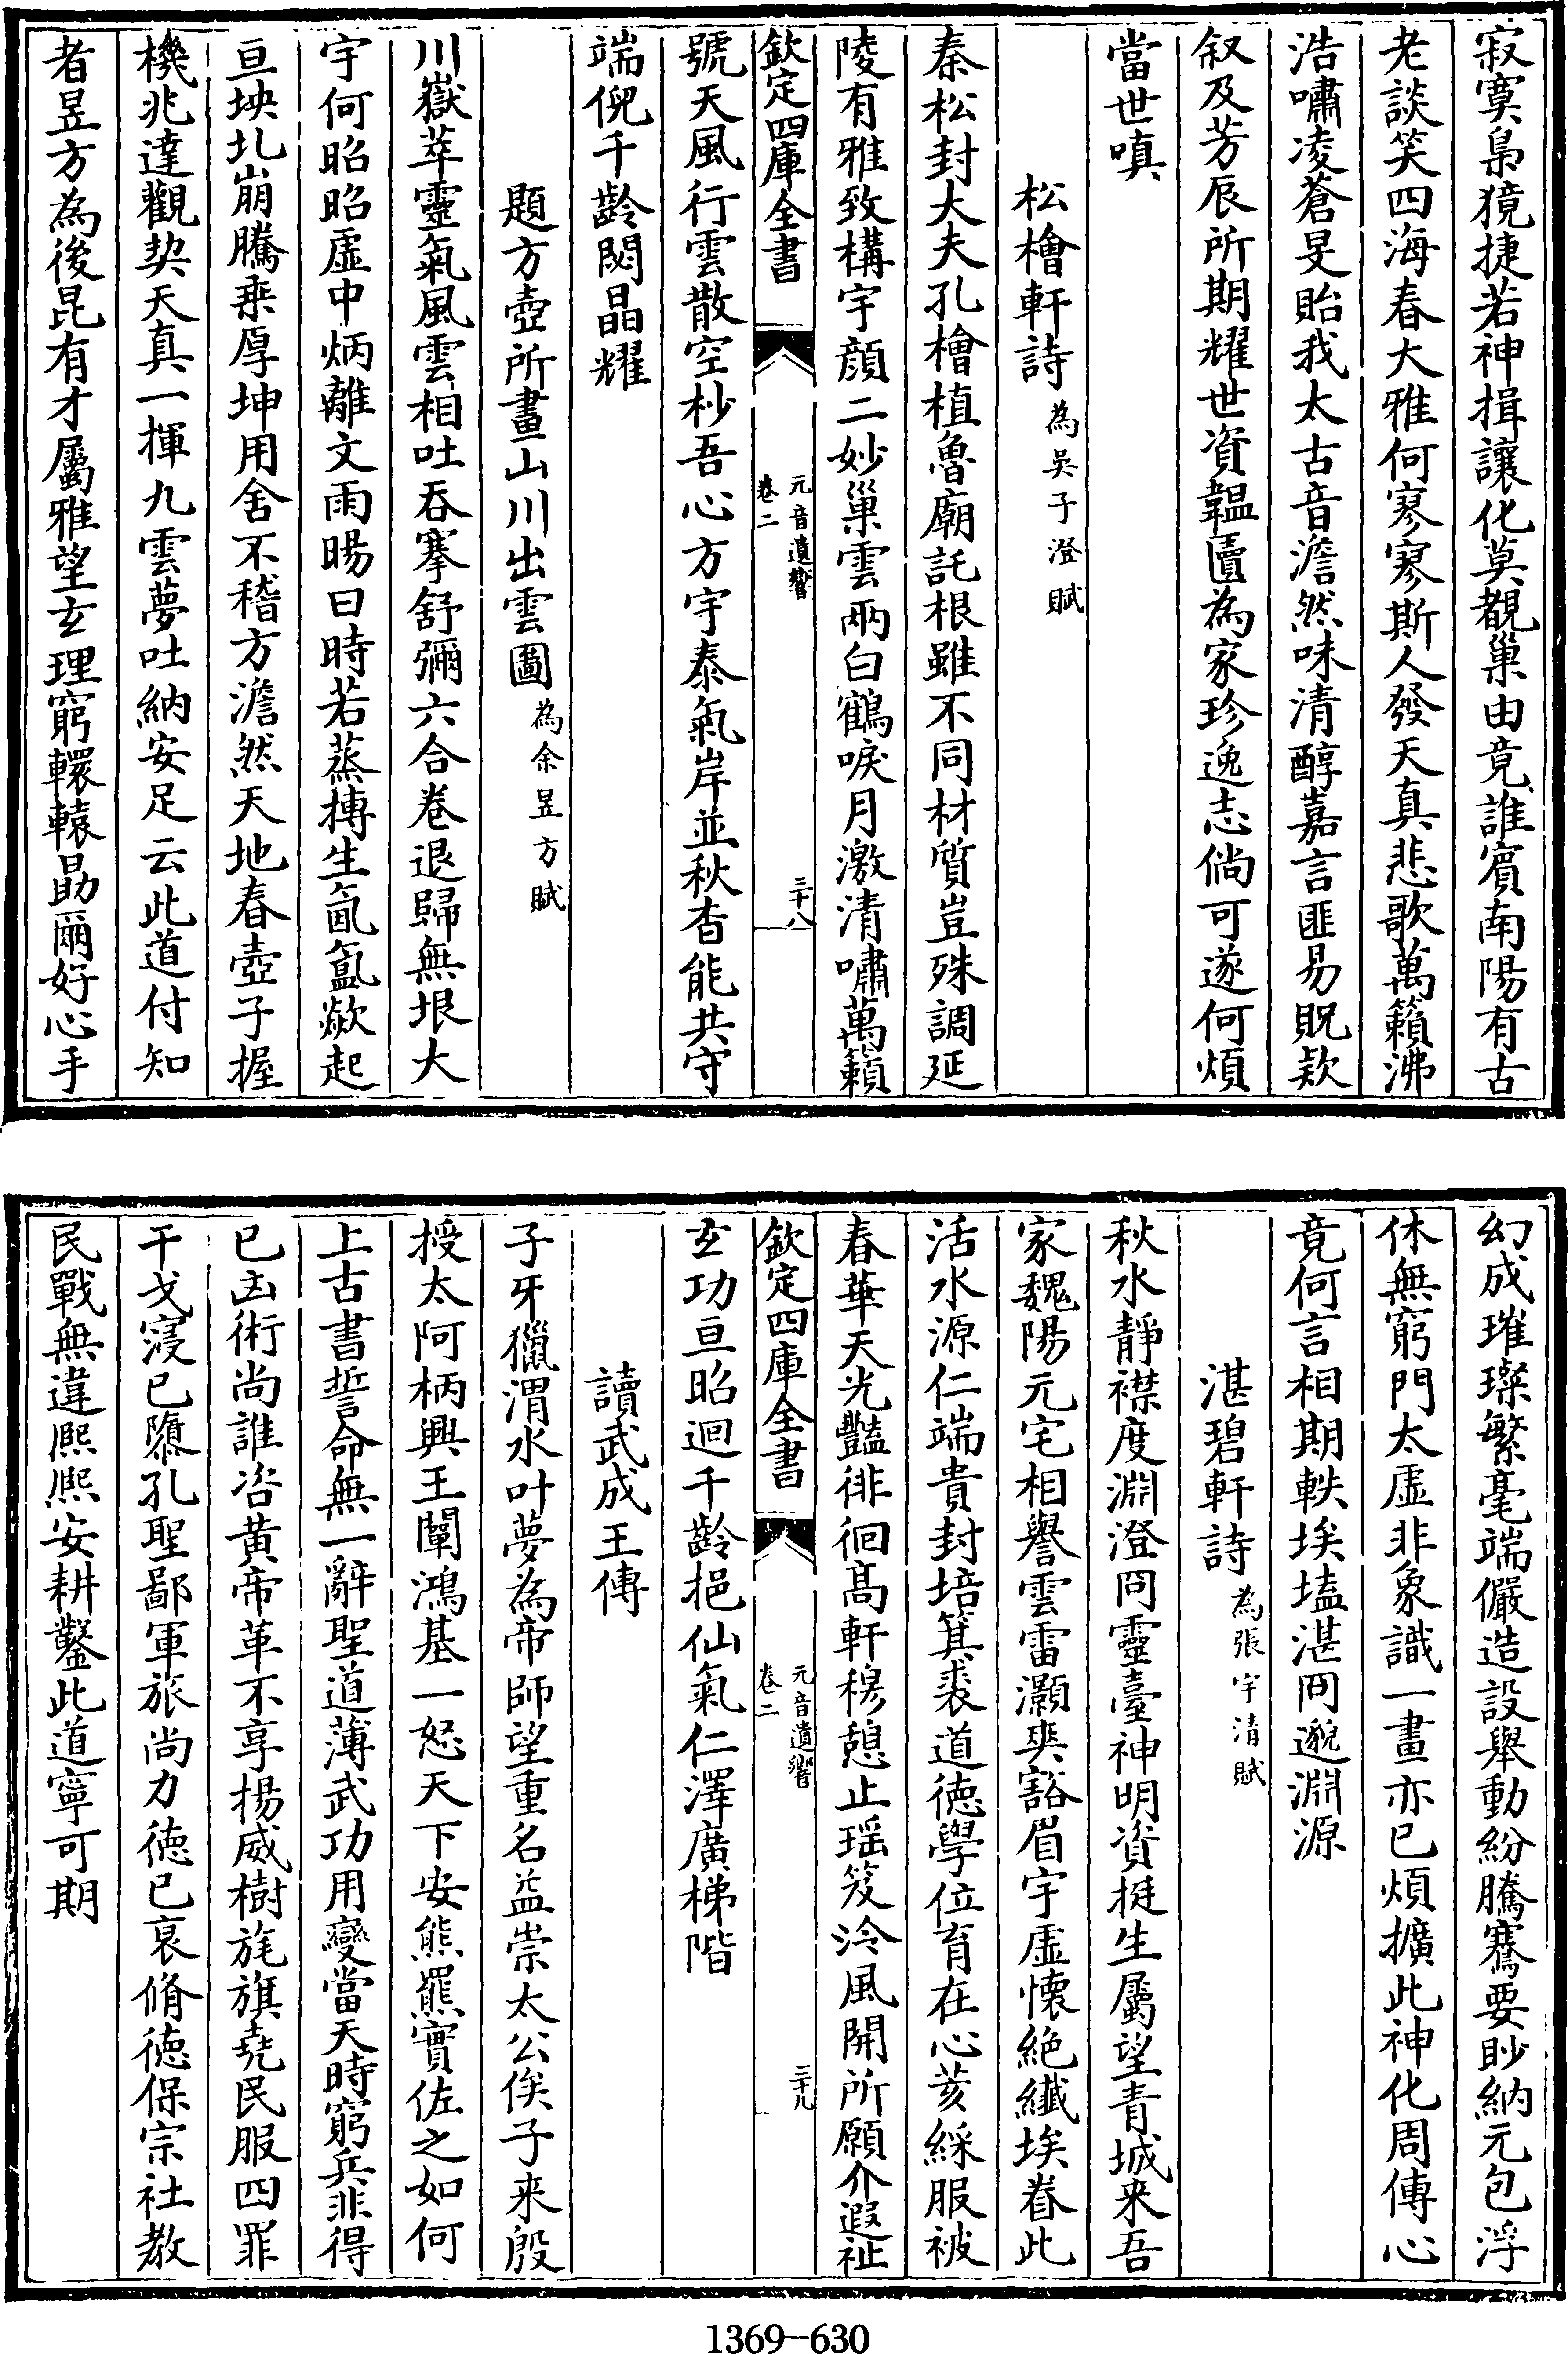 寂寞梟獍捷若神揖讓化莫覩巢由竟誰賓南陽有古
老談笑四海春大雅何寥寥斯人發天真悲歌萬籟沸
浩嘯凌蒼旻貽我太古音澹然味清醇嘉言匪易貺欵
叙及芳辰所期耀世資韞匵為家珍逸志倘可遂何煩
當世嗔
松檜軒詩為吳子澄賦
秦松封大夫孔檜植魯廟託根雖不同材質豈殊調延
陵有雅致構宇顔二妙巢雲兩白鶴唳月激清嘯萬籟
欽定四庫全書
元音遺響
卷二
三十八
號天風行雲散空杪吾心方宇泰氣岸並秋杳能共守
端倪千齡閟晶耀
題方壺所畫山川出雲圖為余昱方賦
川嶽萃靈氣風雲相吐吞搴舒彌六合卷退歸無垠大
宇何昭昭虛中炳離文雨暘曰時若蒸摶生氤氳歘起
亘坱圠崩騰乘厚坤用舍不稽方澹然天地春壺子握
機兆達觀契天真一揮九雲夢吐納安足云此道付知
者昱方為後昆有才屬雅望玄理窮轘轅勗爾好心手
幻成璀璨繁毫端儼造設舉動紛騰騫要眇納元包浮
休無窮門太虛非象識一畫亦已煩擴此神化周傳心
竟何言相期軼埃壒湛冏邈淵源
湛碧軒詩為張宇清賦
秋水靜襟度淵澄冏靈臺神明資挺生屬望青城来吾
家魏陽元宅相譽雲雷灝爽豁眉宇虛懷絶纖埃眷此
活水源仁端貴封培箕裘道徳學位育在心荄綵服被
春華天光豔徘徊髙軒穆憩止瑶笈泠風開所願介遐祉
欽定四庫全書
元音遺響
卷二
三十九
玄功亘昭迴千齡挹仙氣仁澤廣梯階
讀武成王傳
子牙獵渭水叶夢為帝師望重名益崇太公俟子来殷
授太阿柄興王闡鴻基一怒天下安熊羆實佐之如何
上古書誓命無一辭聖道薄武功用變當天時窮兵非得
已凶術尚誰咨黄帝革不享揚威樹旄旗堯民服四罪
干戈寖已隳孔聖鄙軍旅尚力徳已衰脩徳保宗社教
民戰無違熈熈安耕鑿此道寧可期
1369—630